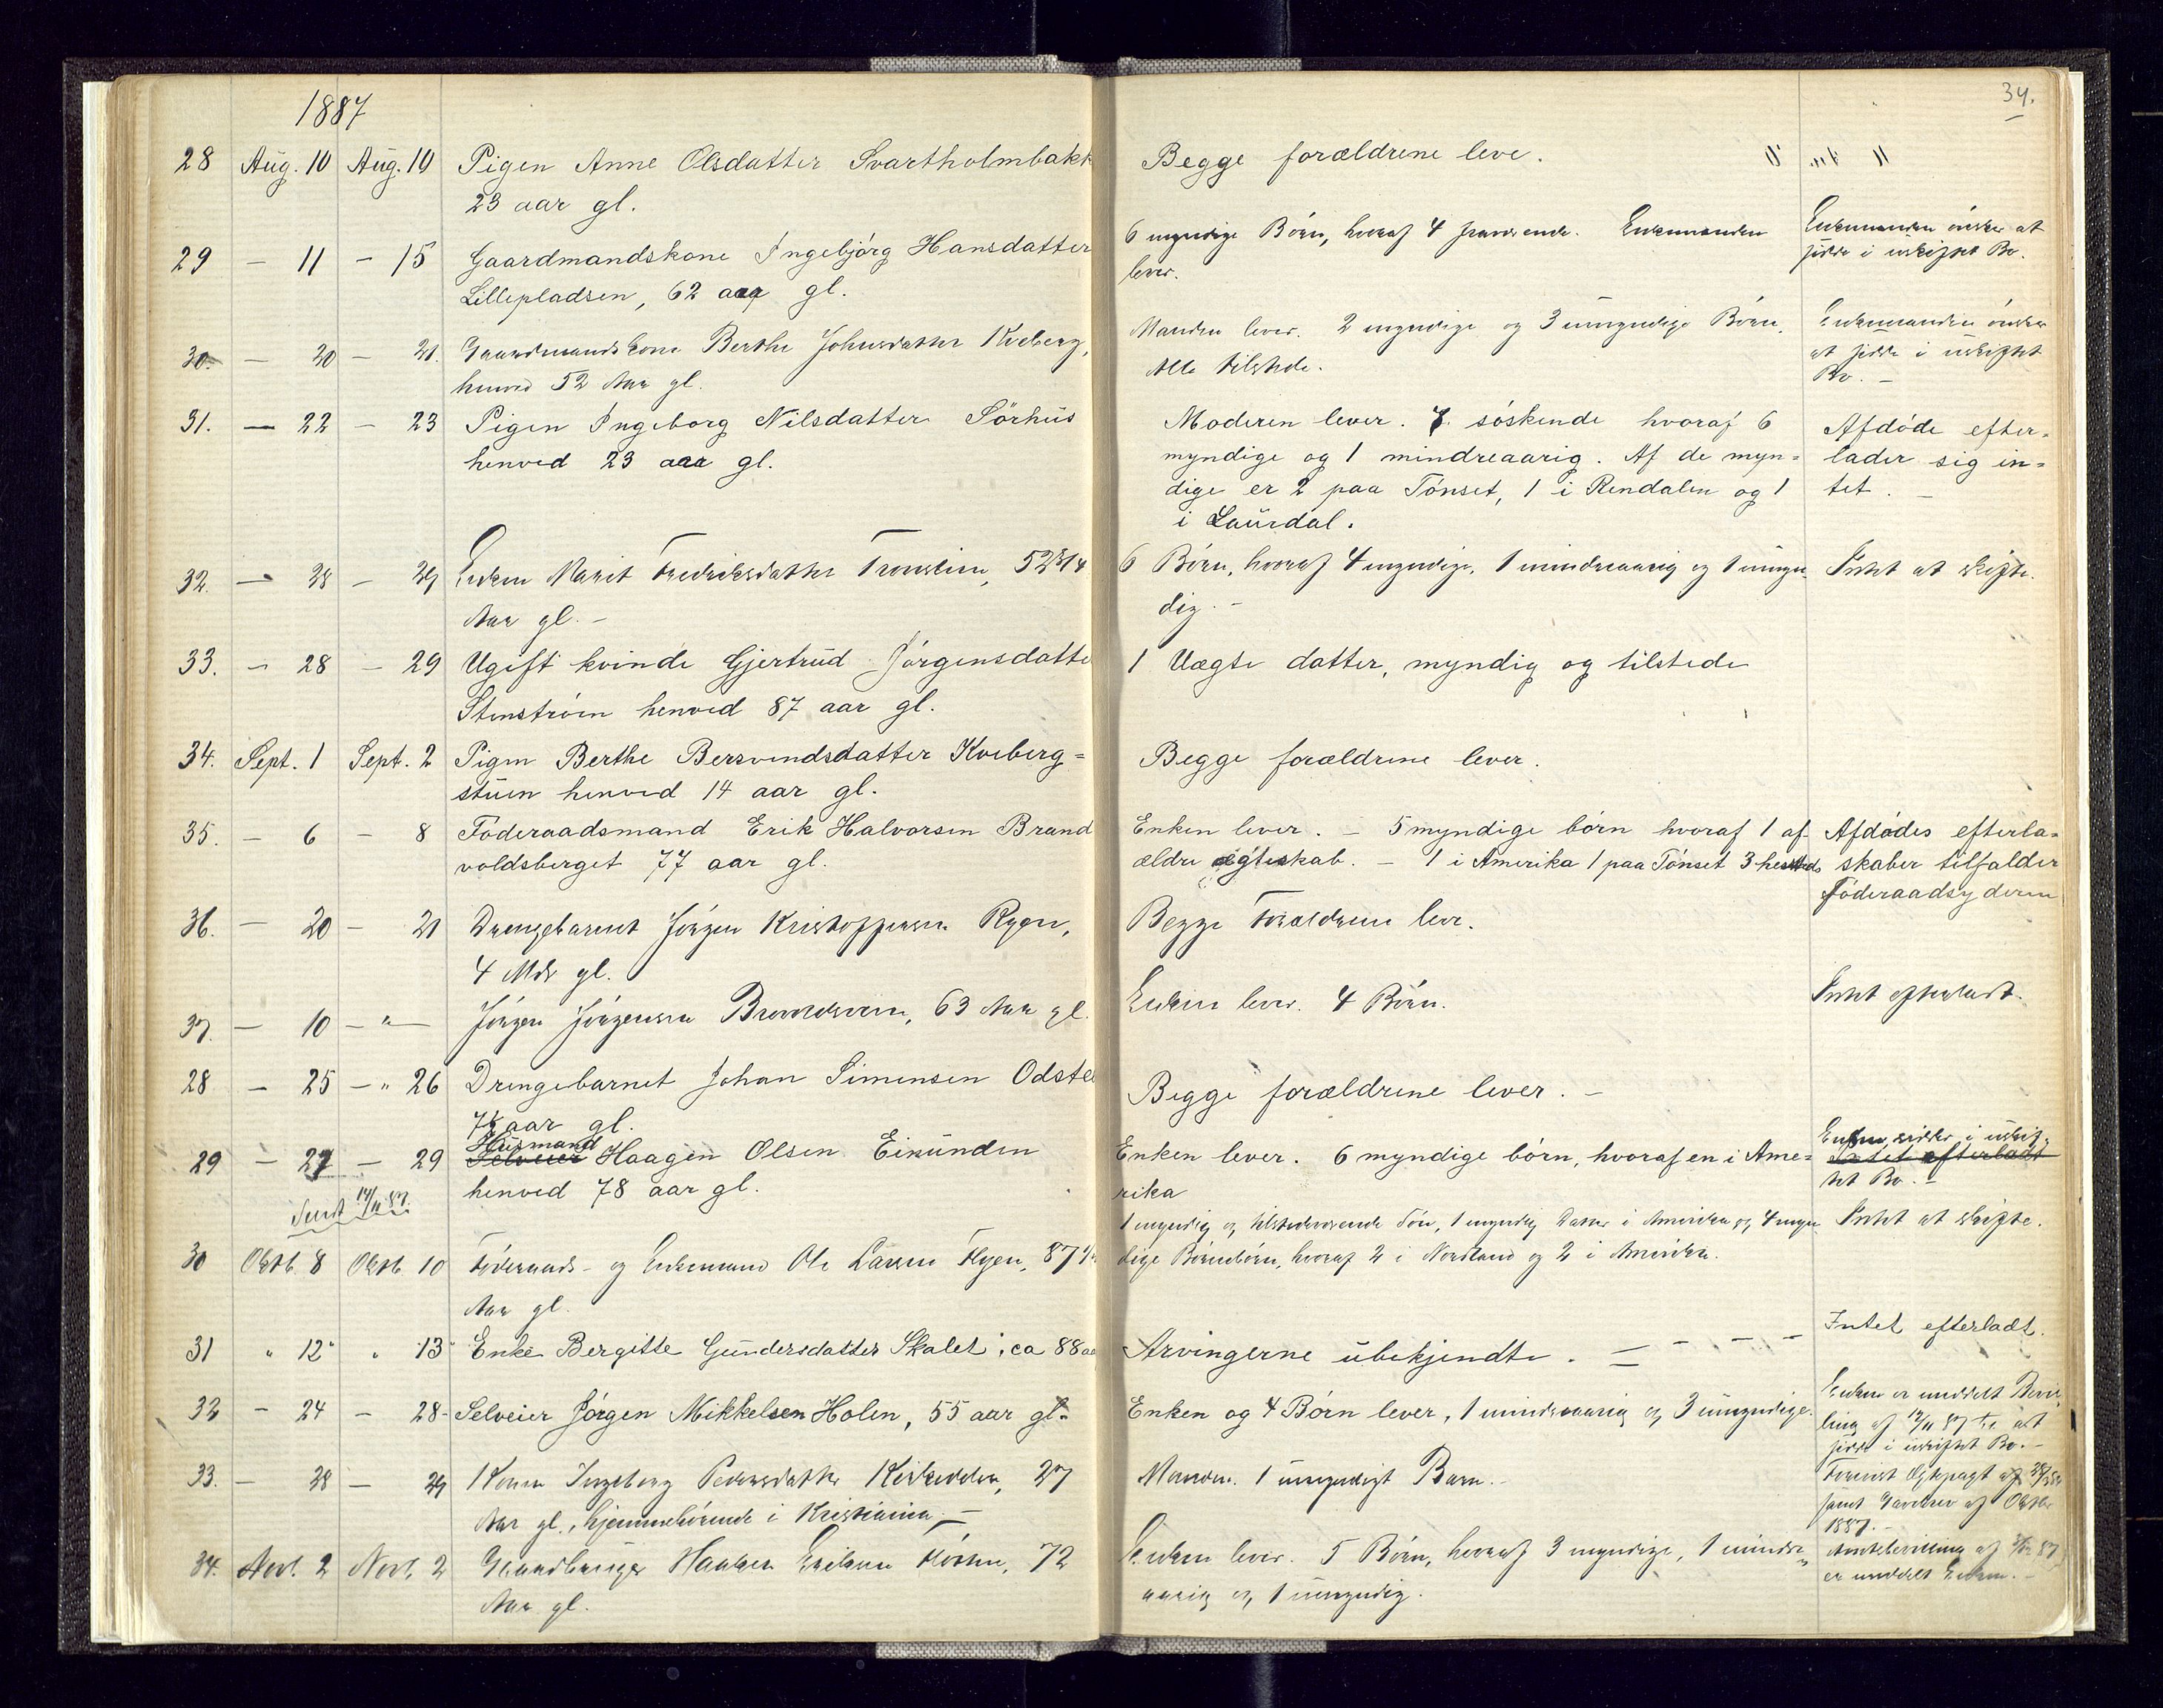 1887
34.
28 Aug. 10 Aug. 10 Pigen Anne Olsdatter Svartholmbakk
23 aar gl.
Begge forældrene leve.
29 - 11 - 15 Gaardmandskone Ingebjørg Hansdatter
Lillepladsen, 62 aar gl.
6 myndige Børn, hvoraf 4 fraværende. Enkemanden
lever.
Enkemanden ønsker at
sidde i uskiftet Bo.
30. - 20 - 21. Gaardmandskone Berthe Johnsdatter Kveberg,
henved 52 Aar gl.
Manden lever. 2 myndige og 3 umyndige Børn.
Alle tilstede.
Enkemanden ønsker
at sidde i uskiftet
Bo. -
31. - 22 - 23 Pigen Ingeborg Nilsdatter Sörhus
henved 23 aar gl.
Moderen lever. 7. søskende hvoraf 6
myndige og 1 mindreaarig. Af de myn=
dige er 2 paa Tønset, 1 i Rendalen og 1
i Laurdal.
Afdøde efter=
lader sig in=
tet. -
32. - 28 - 29 Enken Marit Fredriksdatter Tronslien, 52 3/4
Aar gl. -
6 Børn, hvoraf 4 myndige, 1 mindreaarig og 1 umyn=
dig. -
Intet at skifte.
33. - 28 - 29 Ugift kvinde Gjertrud Jørgensdatte
Stenstrøm henved 87 aar gl.
1 Uægte datter, myndig og tilstede
34. Sept. 1 Sept. 2 Pigen Berthe Bersvendsdatter Kveberg=
stuen henved 14 aar gl.
Begge forældrene lever.
35. - 6 - 8 Føderaadsmand Erik Halvorsen Brand
voldsberget 77 aar gl.
Enken lever. - 5 myndige børn hvoraf 1 af
ældre ægteskab. - 1 i Amerika 1 paa Tønset 3 hersteds
Afdødes efterla=
skaber tilfalder
Føderaadsyderen
36. - 20 - 21 Drengebarnet Jørgen Kristoffersen Ryen,
4 Mdr gl.
Begge Forældrene lever.
37. - 10 - " - Jørgen Jørgensen 63 Aar gl.
Enken lever. 4 Børn.
Intet efterladt.
28 - 25 - " 26 Drengebarnet Johan Simensen
7½ aar gl.
Begge forældrene lever. -
29 - 27 - 29 Selveier Husmand Haagen Olsen Eimunden
henved 78 aar gl.
Sendt 14/11 87.
Enken lever. 6 myndige børn, hvoraf en i Ame=
rika
Enken sidder i uskif=
Intet efterladt
tet Bo. -
30 Oktb. 8 Oktb. 10 Føderaads- og Enkemand Ole Larsen Flyen, 87
Aar gl.
1 myndig og tilstedeværende Søn, 1 myndig Datter i Amerika og 4 myn
dige Børnebørn, hvoraf 2 i Nordland og 2 i Amerika.
Intet at skifte.
31 " 12 " 13 Enke Bergitte Gundersdatter Skalet, ca 88 aa
Arvingerne ubekjendte. - - - -
Intet efterladt.
32 - 24 - 28 - Selveier Jørgen Mikkelsen Holen, 55 aar gl.
Enken og 4 Børn lever, 1 mindreaarig og 3 umyndige.
Enken er meddelt Bevil=
ling af 12/11 87 til at
sidde i uskiftet Bo. -
33. - 28 - 29 Konen Ingeborg Pedersdatter 27
Aar gl., hjemmehørende i Kristiania. -
Manden. 1 umyndigt Barn. -
af Oktbr
1887. -
34. Novb. 2 Novb. 2 Gaardbruger Haaken Eriksen 72
Aar gl.
Enken lever. 5 Børn, hvoraf 3 myndige, 1 mindre=
aarig og 1 umyndig.
Amtsbevilling af 87
er meddelt Enken. -